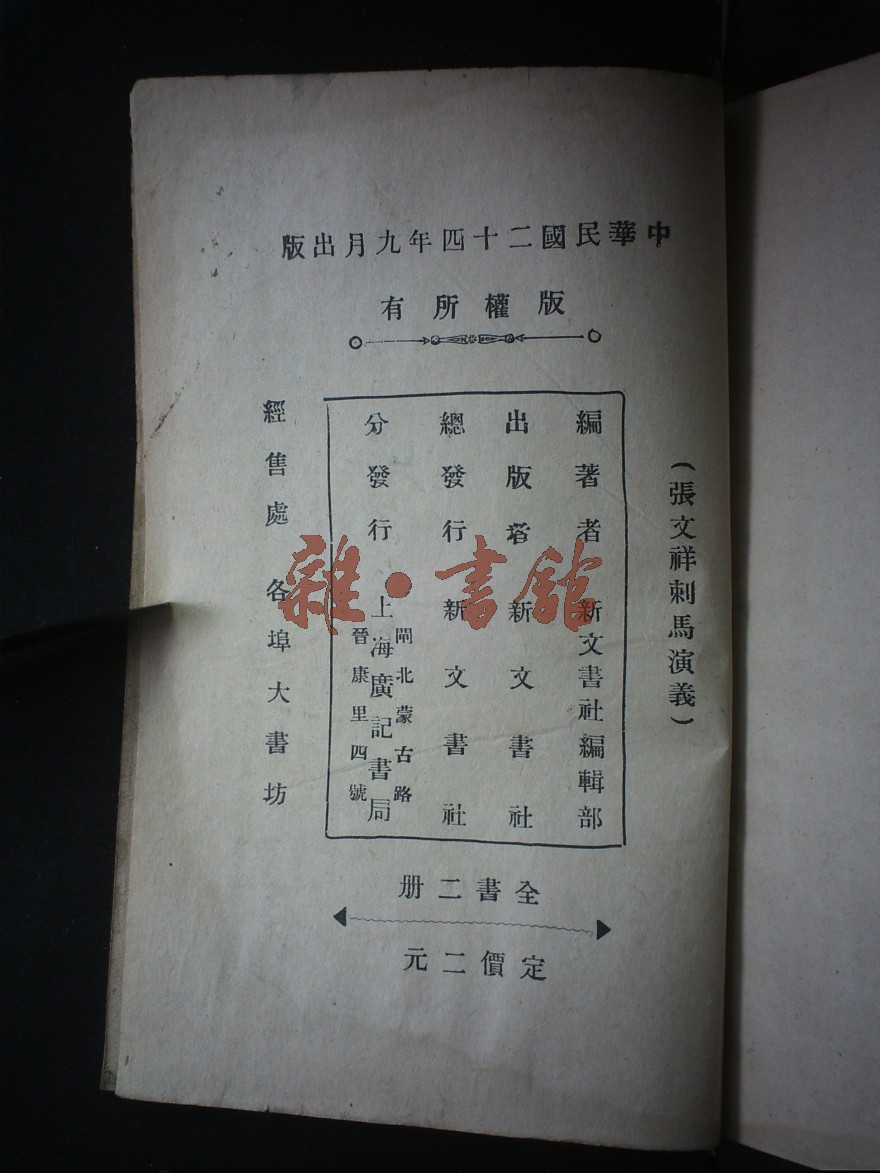 中華民國二十四年九月出版
版權所有
(張文祥刺馬演義)
編著者 新文書社編輯部
出版者 新文書社
總發行 新文書社
分發行 上海廣記書局
閘北蒙古路
晉康里四號
經售處 各埠大書坊
全書二册
定價二元
雜·書館